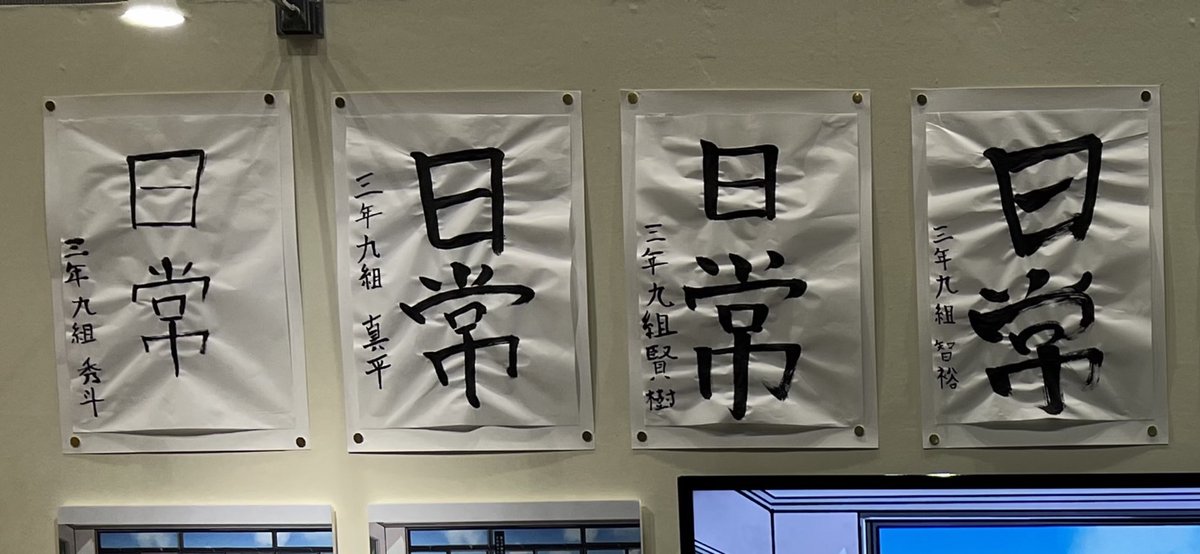 日常
三年九組 秀斗
日常
三年九組 真平
日常
三年九組 賢樹
日常
三年九組 智裕